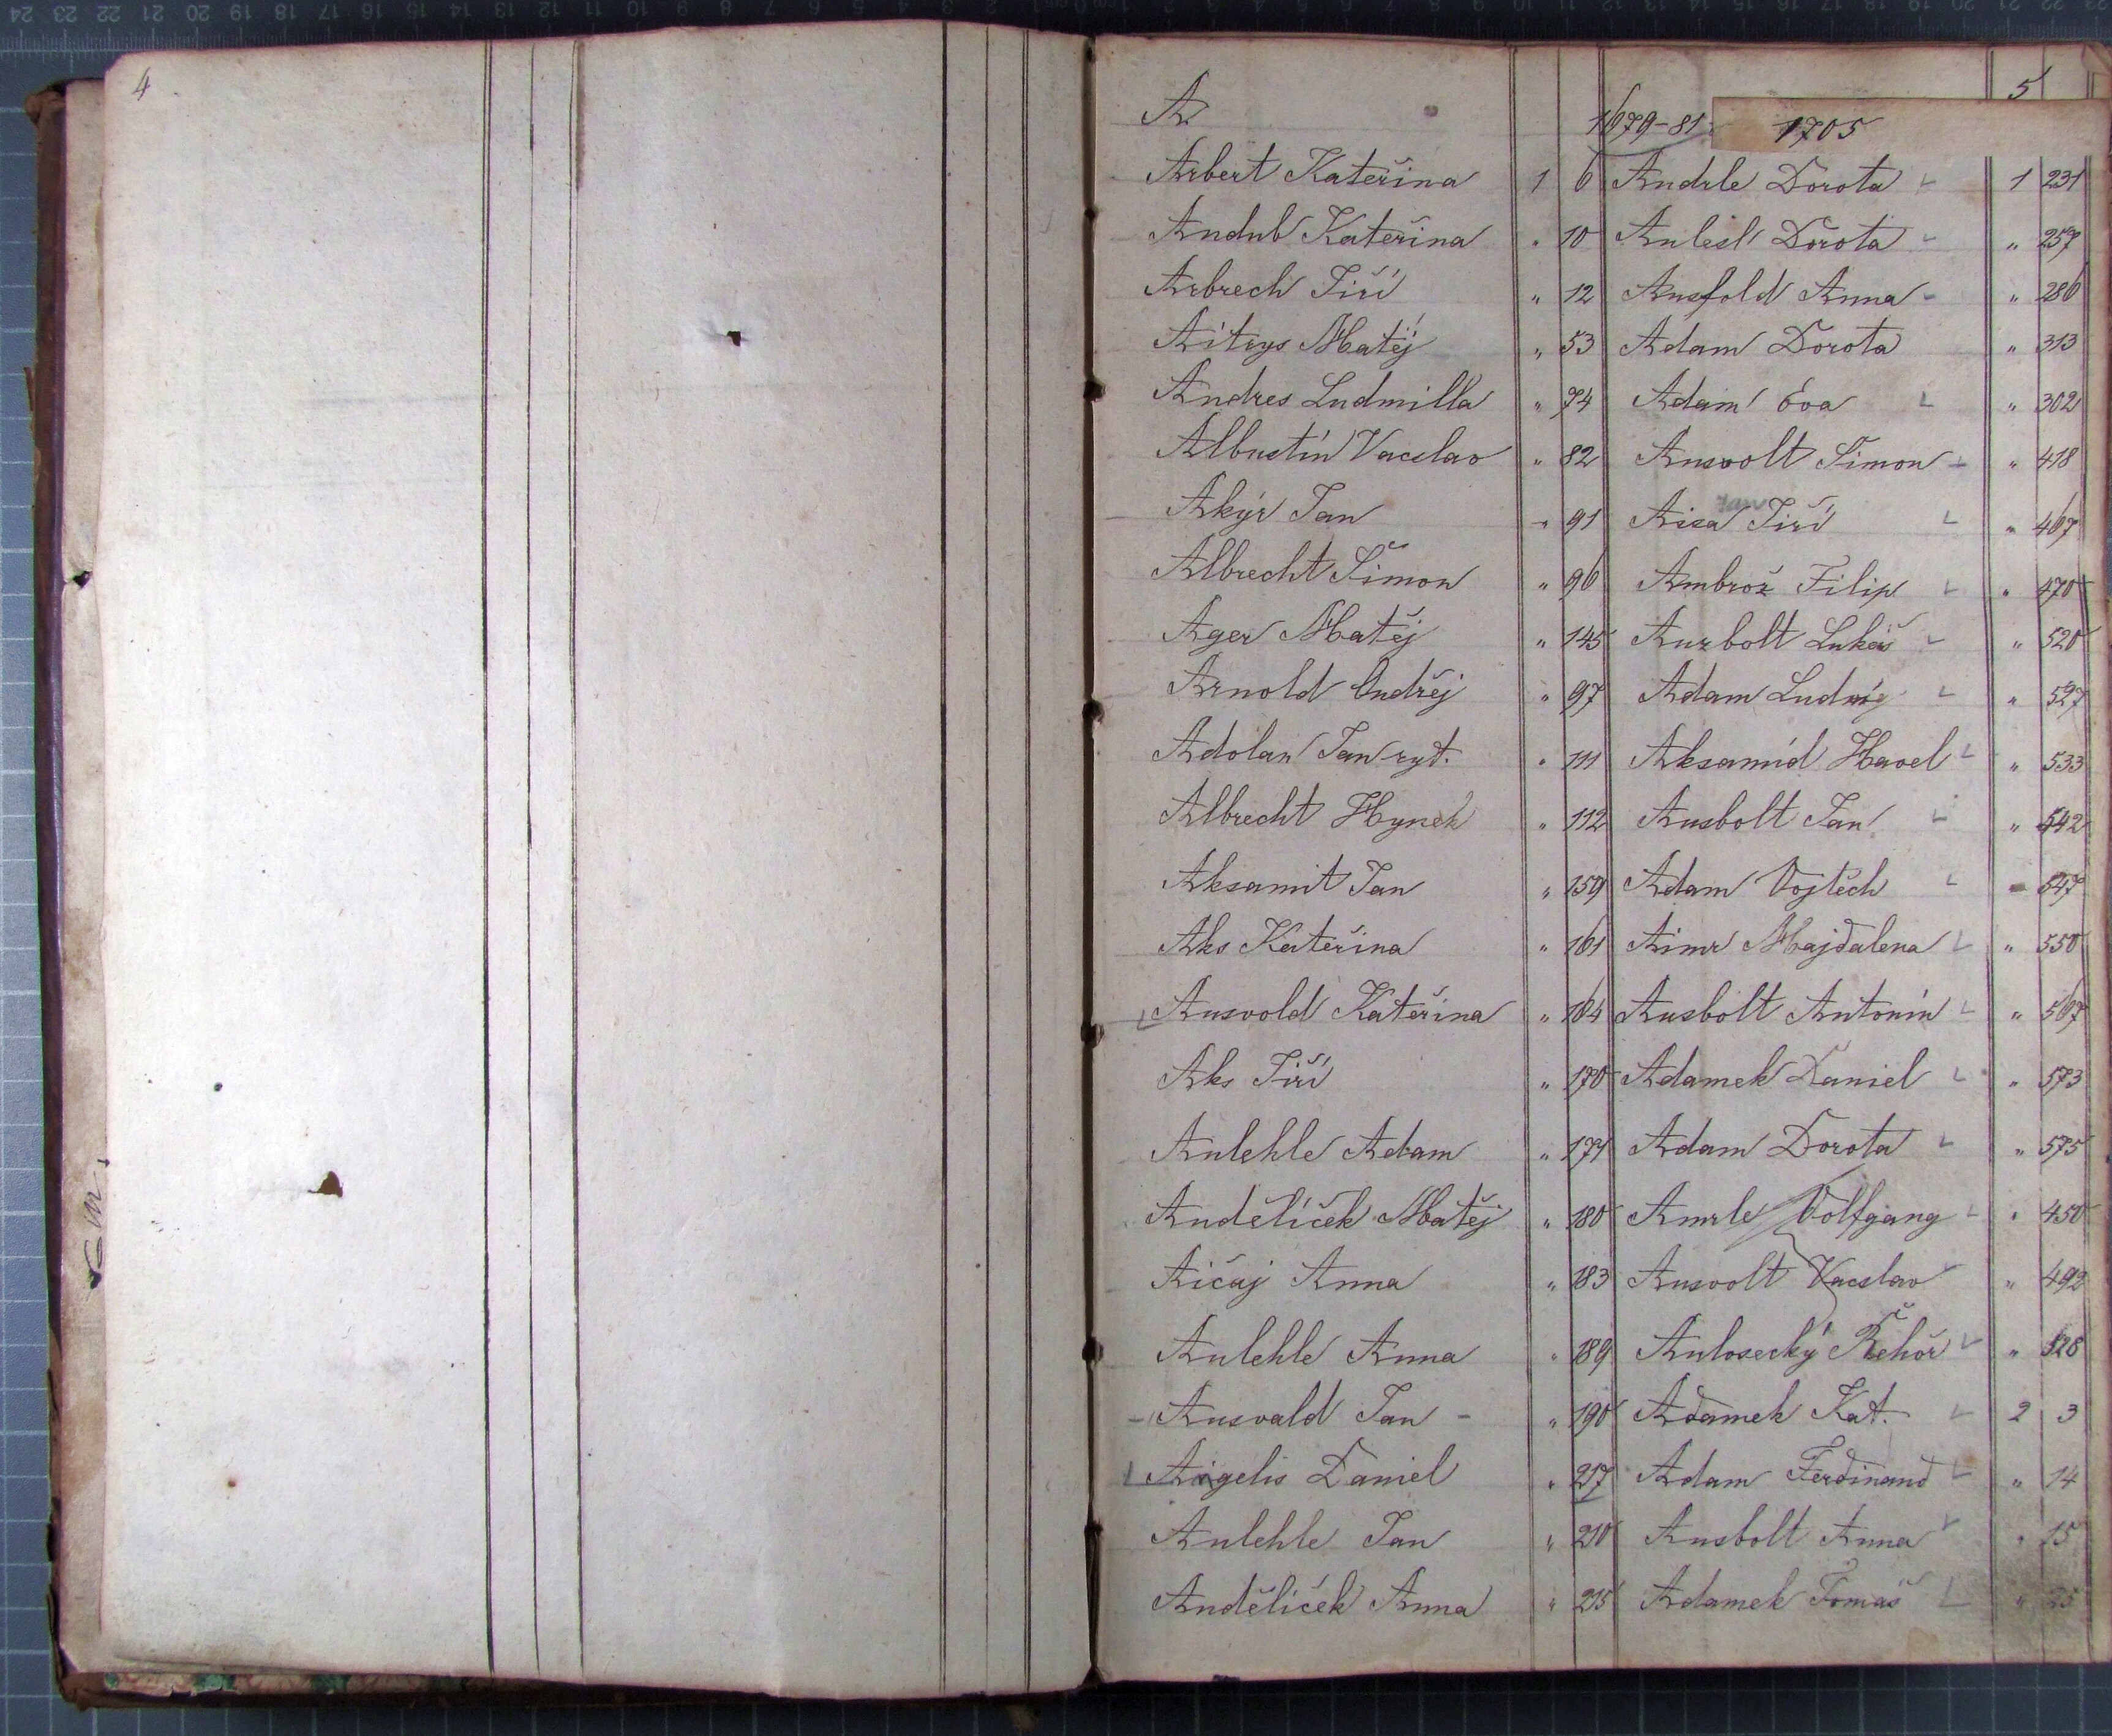 4
5
A
1679-81
1705
Arbert Kateřina 1 6
Andub Kateřina " 10
Arbrech Jiří " 12
Aitrys Matěj " 53
Andres Ludmilla " 74
Albustín Vacslav " 82
Akýr Jan " 91
Albrecht Šimon " 96
Ager Matěj " 145
Arnold Ondřej " 97
Adolar Jan ryt. " 111
Albrecht Hynek " 112
Aksamit Jan " 159
Aks Kateřina " 161
Ausvold Kateřina " 164
Aks Jiří " 170
Aulehle Adam " 171
Andělíček Matěj " 180
Aičaj Anna " 183
Aulehle Anna " 189
Ausvald Jan " 190
Aigelis Daniel " 217
Aulehle Jan " 210
Andělíček Anna " 215
Andrle Dorota 1 231
Aulesl Dorota " 257
Ausfold Anna " 286
Adam Dorota " 313
Adam Eva " 302
Ausvolt Šimon " 418
Jan
Aisa Jiří " 467
Ambrož Filip " 470
Aurbolt Lukáš " 520
Adam Ludwig " 527
Aksamíd Havel " 533
Ausbolt Jan " 542
Adam Vojtěch " 547
Aimr Majdalena " 550
Ausbolt Antonín " 567
Adamek Daniel " 573
Adam Dorota " 575
Amrle Volfgang " 450
Ausvolt Vacslav " 492
Aulosecký Řehoř " 528
Adamek Kat. 2 3
Adam Ferdinand " 14
Ausbolt Anna " 15
Adamek Tomáš " 25